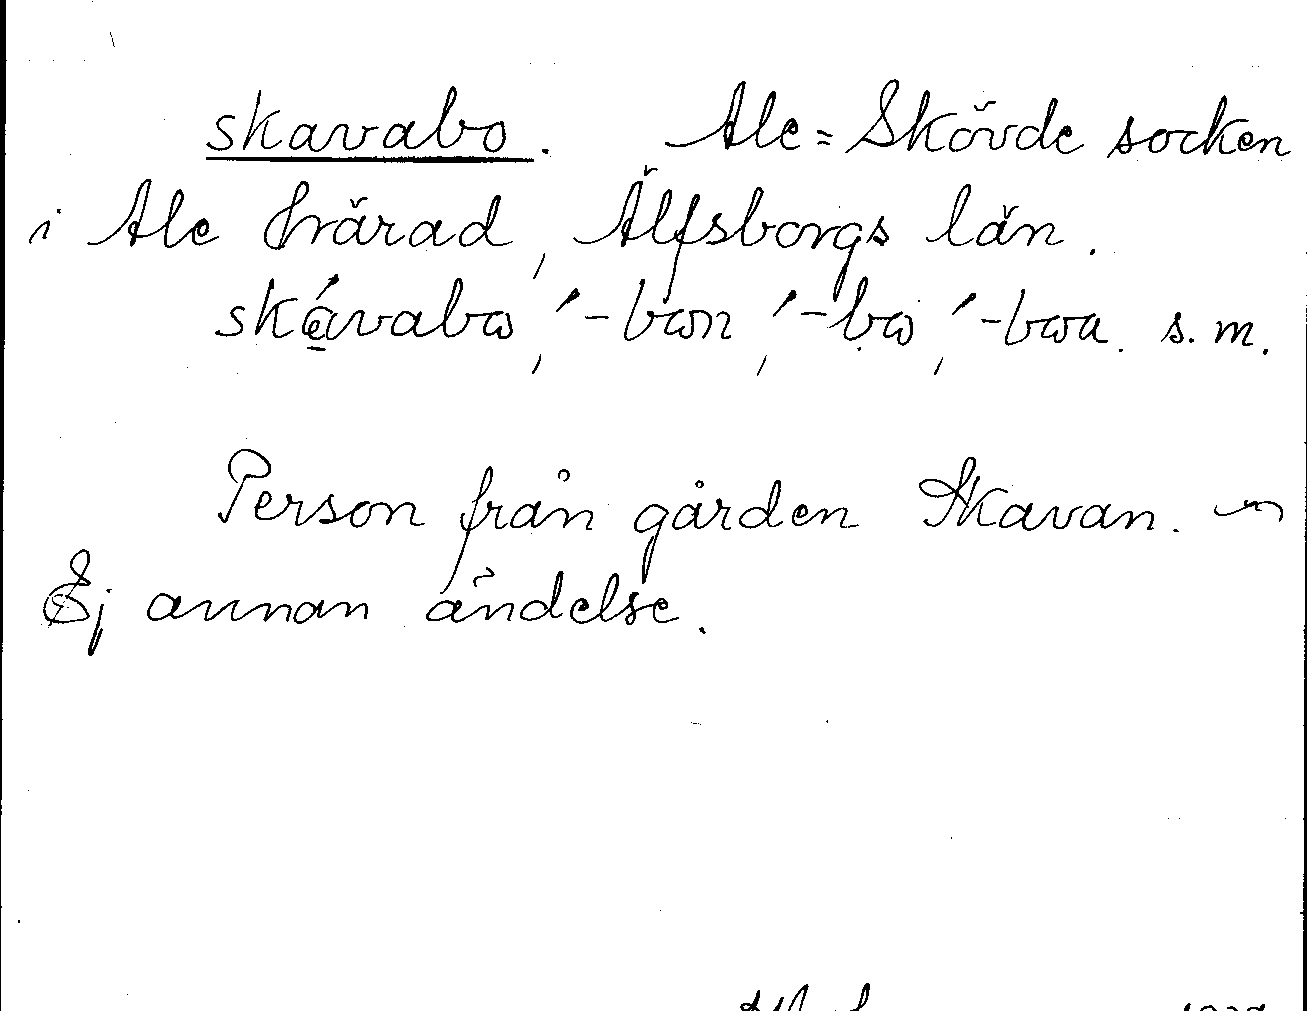 skavabo. Ale=Skövde socken
i Ale härad, Älfsborgs län.
skávabω, ́-bωn, ́-bω, ́-bωa. s.m.
Person från gården Skavan. ~
Ej annan ändelse.